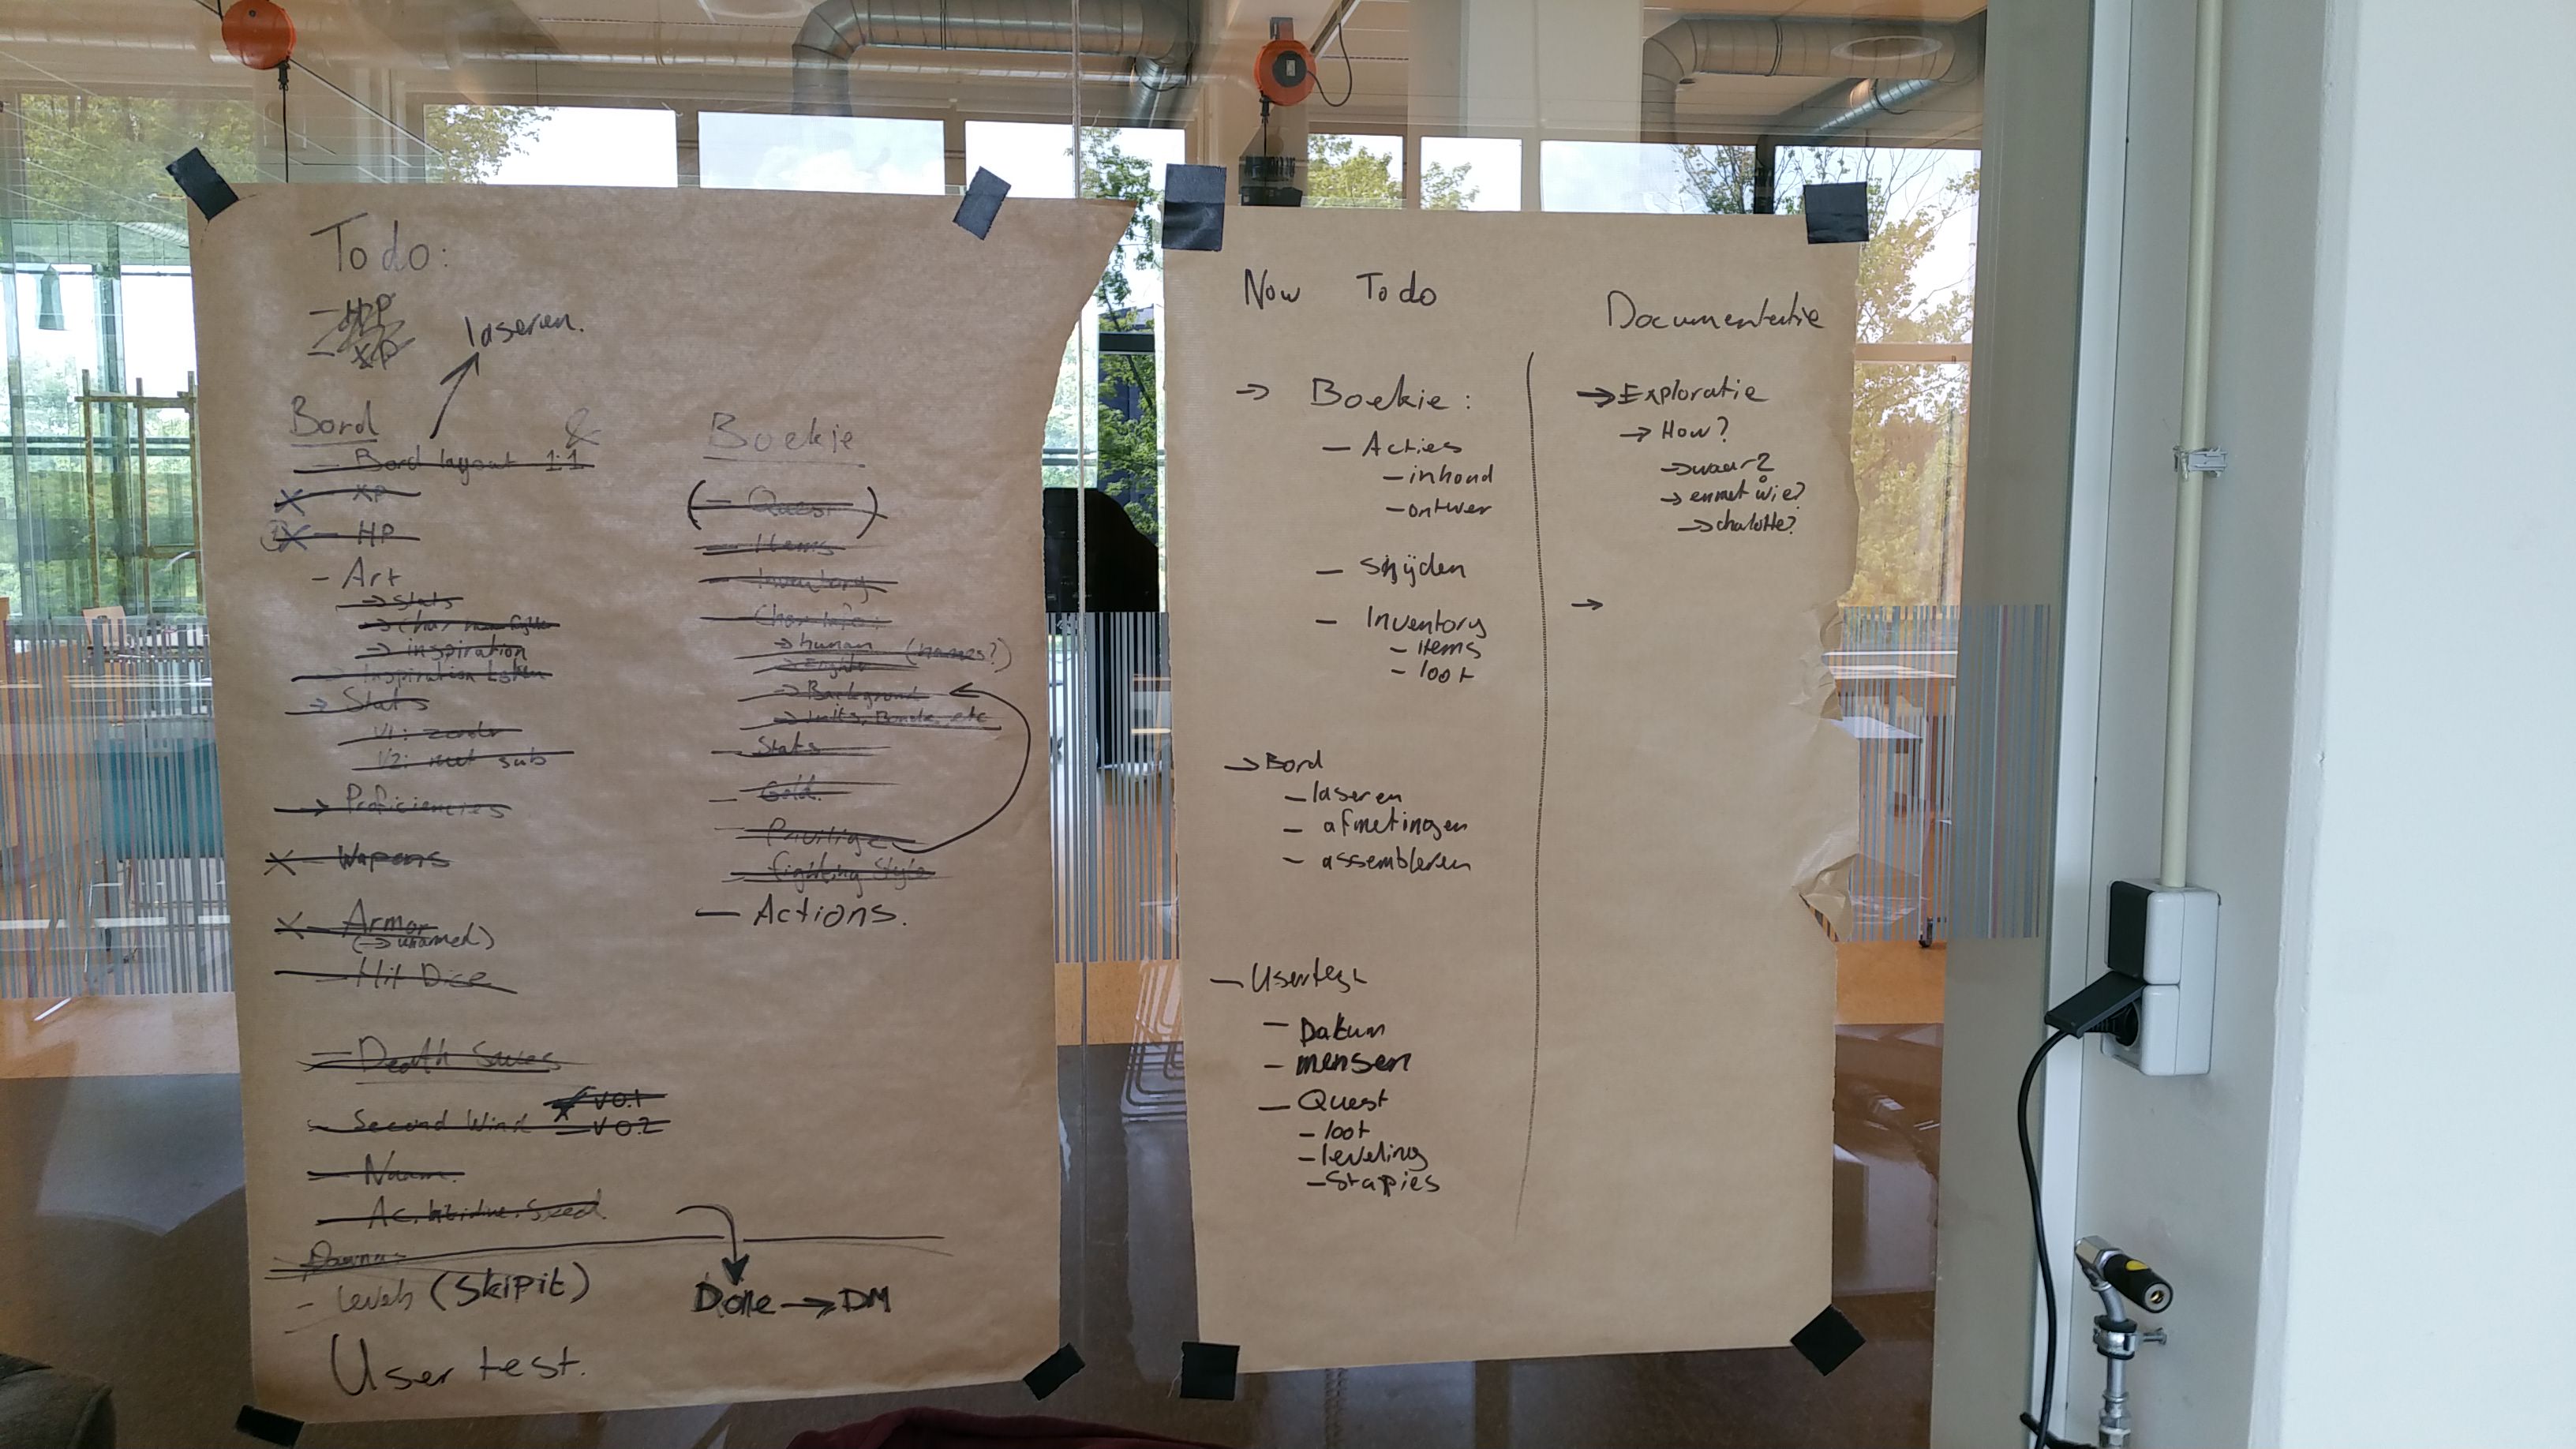 To do:
- HP
- XP
laseren.
Bord
- Bord layout 1:1
&
- XP
- HP
- Art
→ Stats
→ Char
→ inspiration
- Inspiration token
→ Stats
V1: zonder
V2: met sub
→ Proficiencies
- Wapens
- Armor
(→ unarmed)
- Hit Dice
- Death Saves
- Second Wind
V0.1
V0.2
- Naam
- levels (Skip it)
User test.
Boekie
(- Quest)
- Items
- Inventory
- Char info:
→ human (names?)
→ Fighter
→ Background
→ traits, Bonds, etc
- Stats
- Gold.
- fighting Style
- Actions.
Done → DM
Now To do
→ Boekie:
- Acties
- inhoud
- ontwer
- Snijden
- Inventory
- items
- loot
→ Bord
- laseren
- afmetingen
- assembleren
- Usertest
- Datum
- mensen
- Quest
- loot
- leveling
- Stapies
Documentatie
→ Exploratie
→ How?
→ waar?
→ en met wie?
→ charlotte?
→